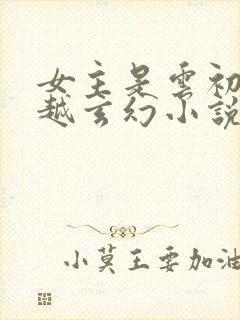 女主是雲初
越玄幻小說
小莫王要加油